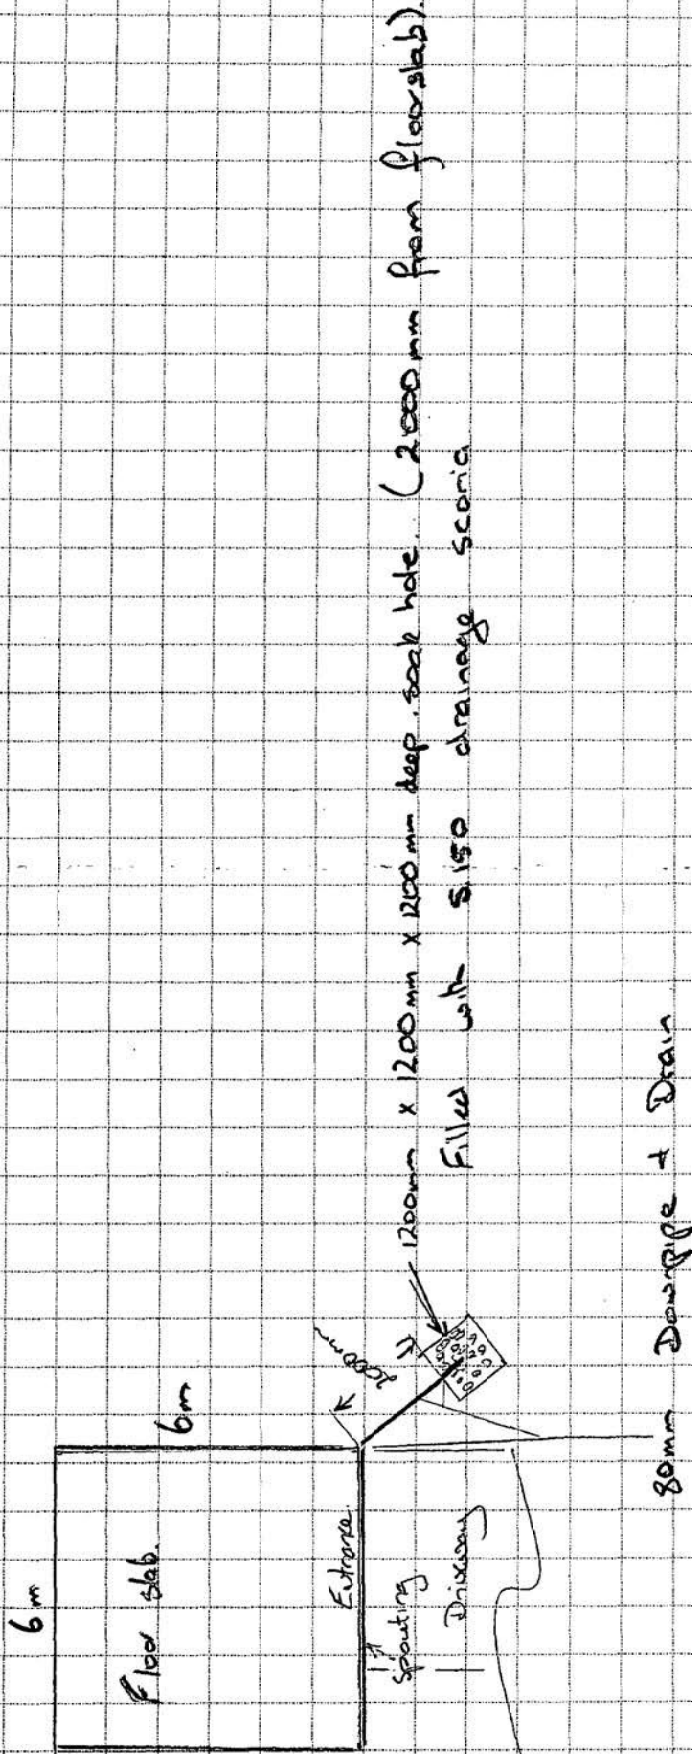 6m
Floor slab.
6m
Entrance.
Spouting
Driveway
2000mm
1200mm x 1200mm x 1200mm deep. soak hole. (2000mm from floorslab).
Filled with S.150 drainage scoria
80mm Downpipe & Drain